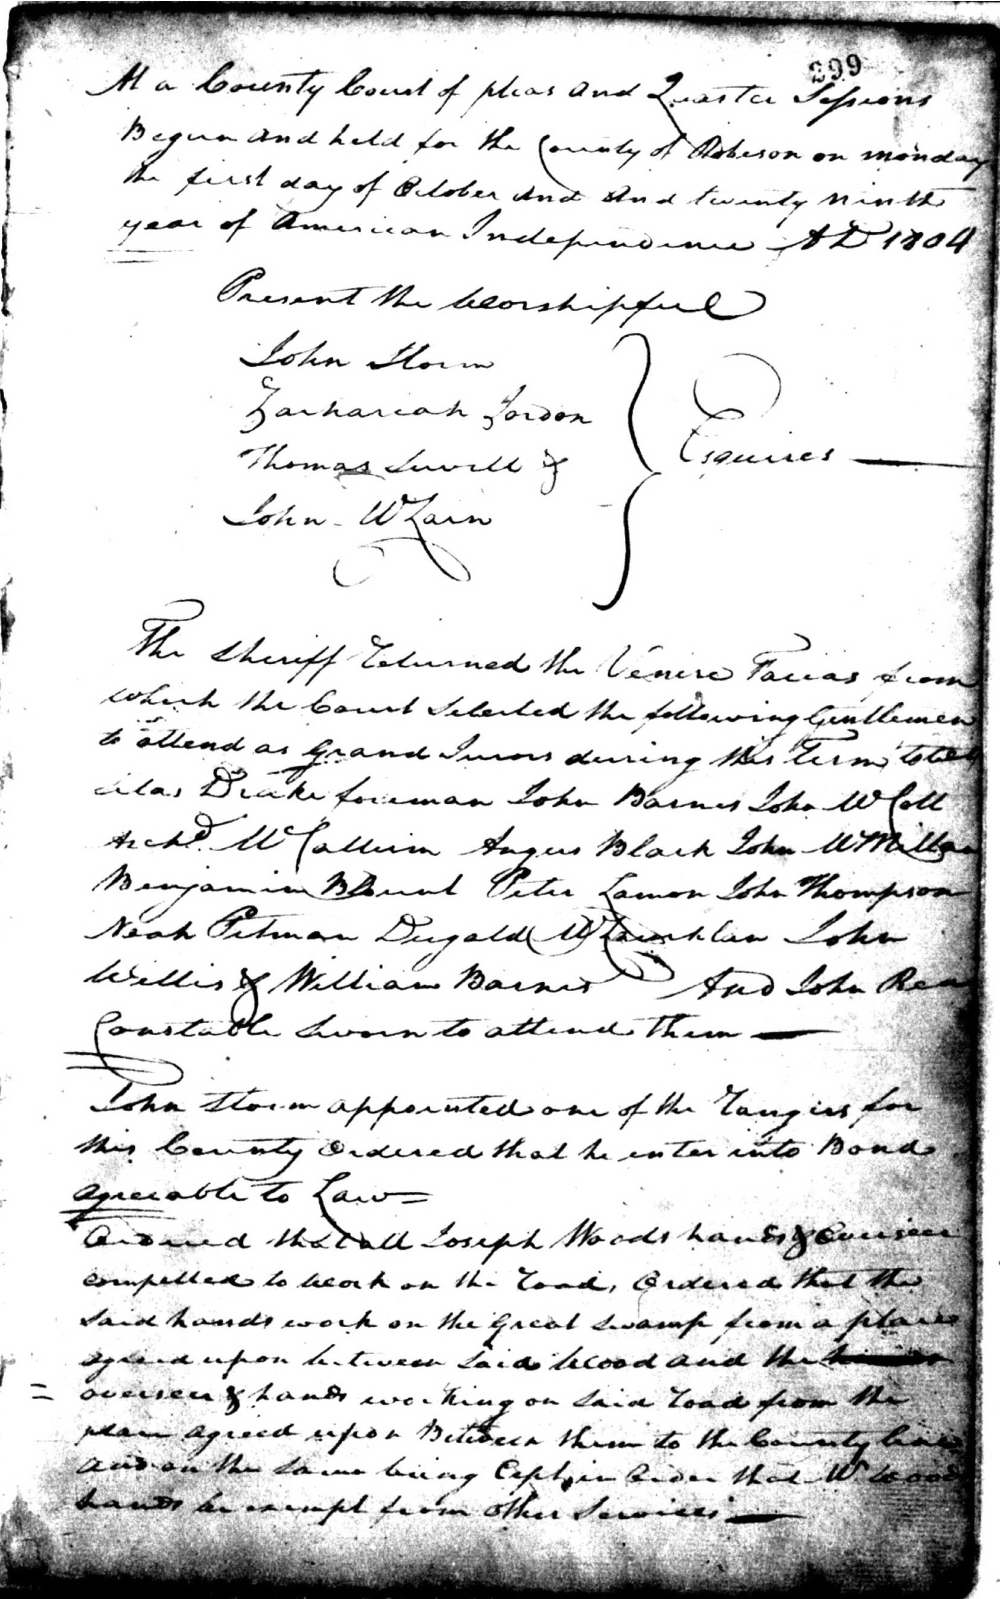 299
At a County Court of pleas and Quarter Sessions
Begun and held for the County of Robeson on monday
the first day of October and and twenty ninth
year of American Independence AD 1804
Present the Worshipful
John Storm
Zachariah Jordon
Thomas Sewell &
John
Esquires
The Sheriff Returned the Venire Facias from
which the Court Selected the following Gentlemen
to attend as Grand Jurors during this Term towit
Silas Drake foreman John Barnes John McColl
Archd. McCallum Angus Black John McMillan
Benjamin Blount Peter Lamon John Thompson
Noah Pitman Dugald McLauchlan John
Willis & William Barnes And John Rea
Constable Sworn to attend them
John Storm appointed one of the Rangers for
this County Ordered that he enter into Bond
agreeable to Law
Ordered that all Joseph Woods hands & Overseer
compelled to work on the Road, Ordered that the
Said hands work on the Great Swamp from a place
agreed upon between Said Wood and the
overseer & hands working on Said road from the
place agreed upon Between them to the County line
and on the Same being Kept in Order that Mr Woods
hands be exempt from other Services